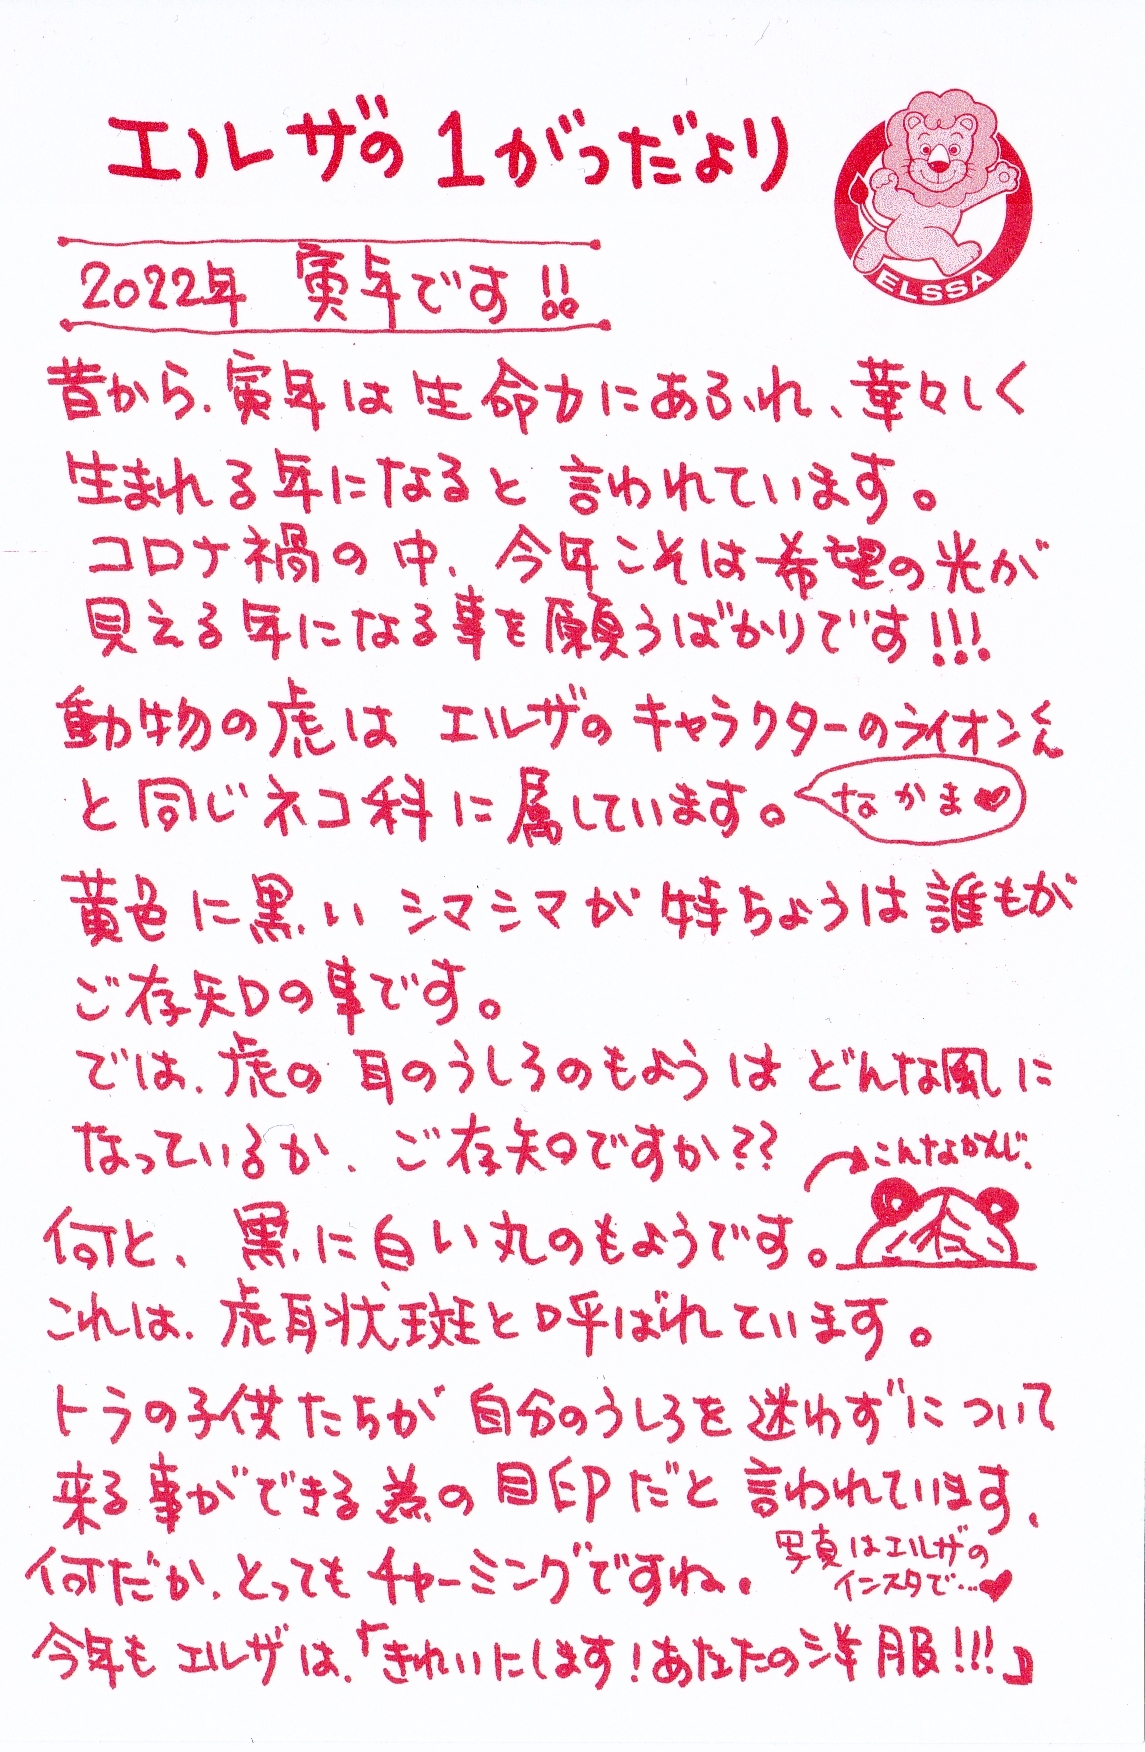 エルザの1がつだより
ELSSA
2022年 寅年です!!
昔から、寅年は生命力にあふれ、華々しく
生まれる年になると言われています。
コロナ禍の中、今年こそは希望の光が
見える年になる事を願うばかりです!!!
動物の虎はエルザのキャラクターのライオンくん
と同じネコ科に属しています。
なかま♥
黄色に黒いシマシマが特ちょうは誰もが
ご存知の事です。
では、虎の耳のうしろのもようはどんな風に
なっているか、ご存知ですか??
こんなかんじ.
何と、黒に白い丸のもようです。
これは、虎耳状斑と呼ばれています。
トラの子供たちが自分のうしろを迷わずについて
来る事ができる為の目印だと言われています、
何だか、とってもチャーミングですね。
写真はエルザの
インスタで…♥
今年もエルザは、「きれいにします!あなたの洋服!!!」